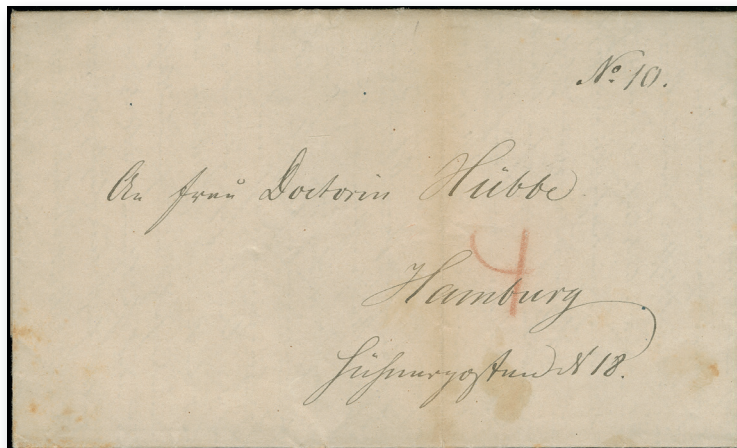 No. 10.
An Frau Doctorin Hübbe
4
Hamburg
Hühnerposten N 18.